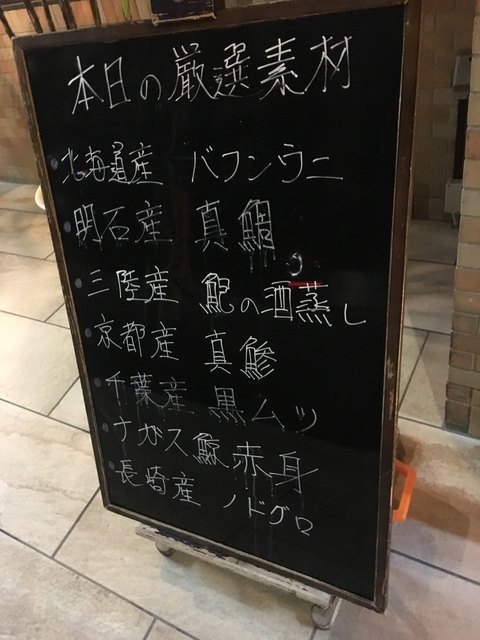 本日の厳選素材
北海道産 バフンウニ
明石産 真鯛
三陸産 鮑の酒蒸し
京都産 真鯵
千葉産 黒ムツ
ナガス鯨赤身
長崎産 ノドグロ